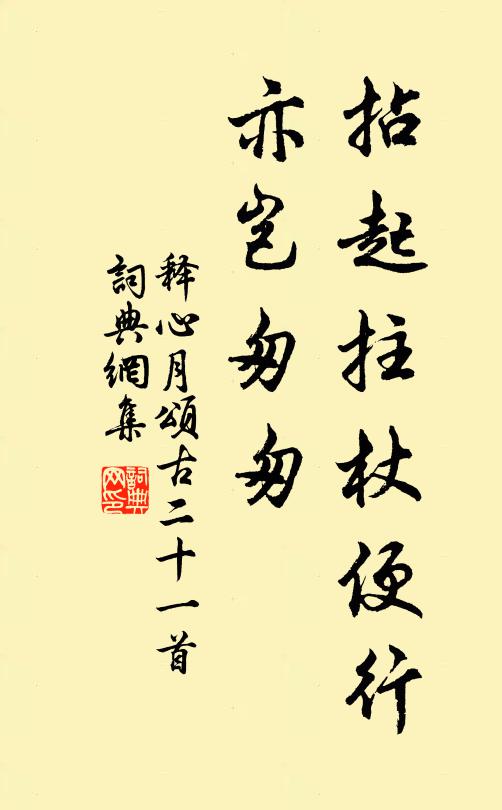 拈起拄杖便行
亦岂匆匆
释心月頌古二十一首
詞典網集
詞典網印